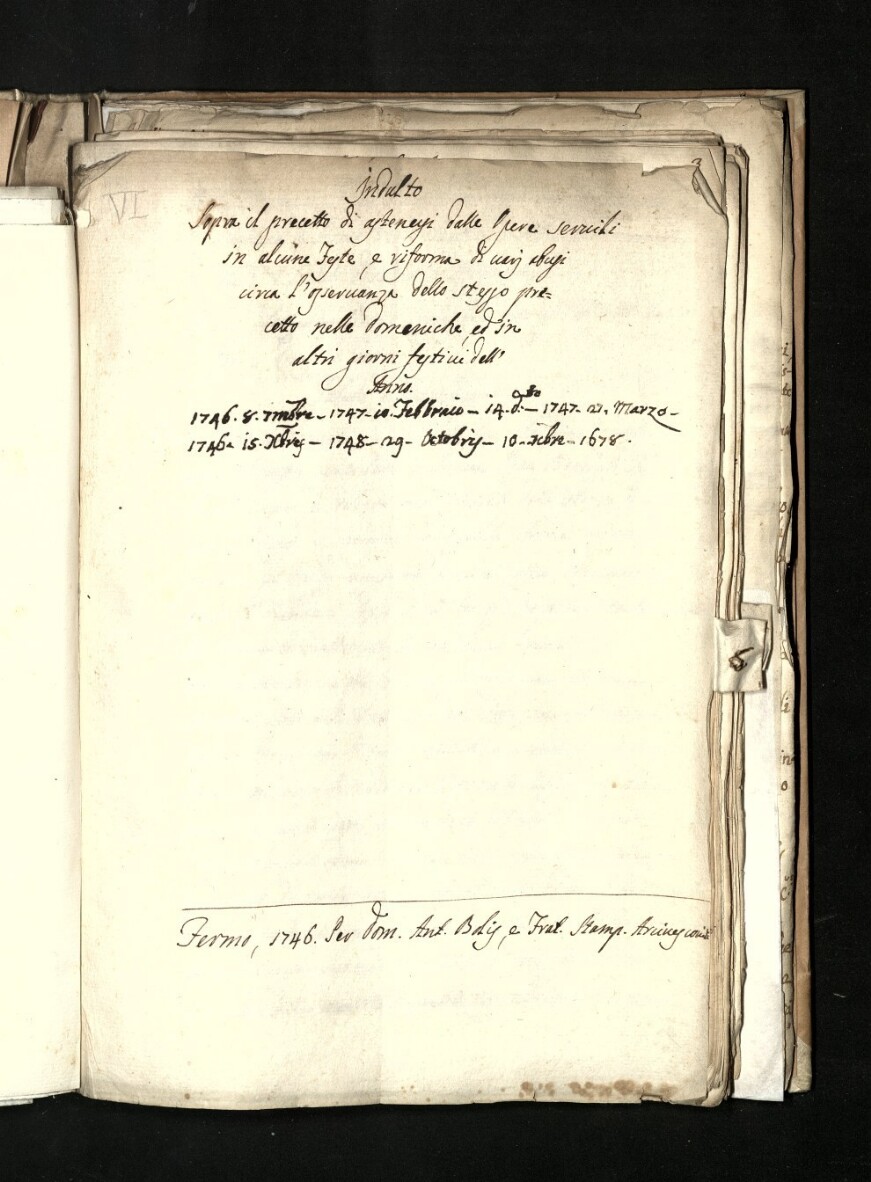 VI
3
Indulto
Sopra il precetto di astenersi dalle Opere servili
in alcune Feste, e riforma di varj abusi
circa l'osservanza dello stesso pre=
cetto nelle Domeniche, ed in
altri giorni festivi dell'
Anno.
1746. 8. 7mbre - 1747 - 10. Febbraio - 14. do - 1747 - 21. Marzo -
1746. 15. Xbris - 1748 - 29 - Octobris - 10 - Xbre - 1678.
5
Fermo, 1746. Per Dom. Ant. Bolis, e Frat. Stamp. Arcivescovili